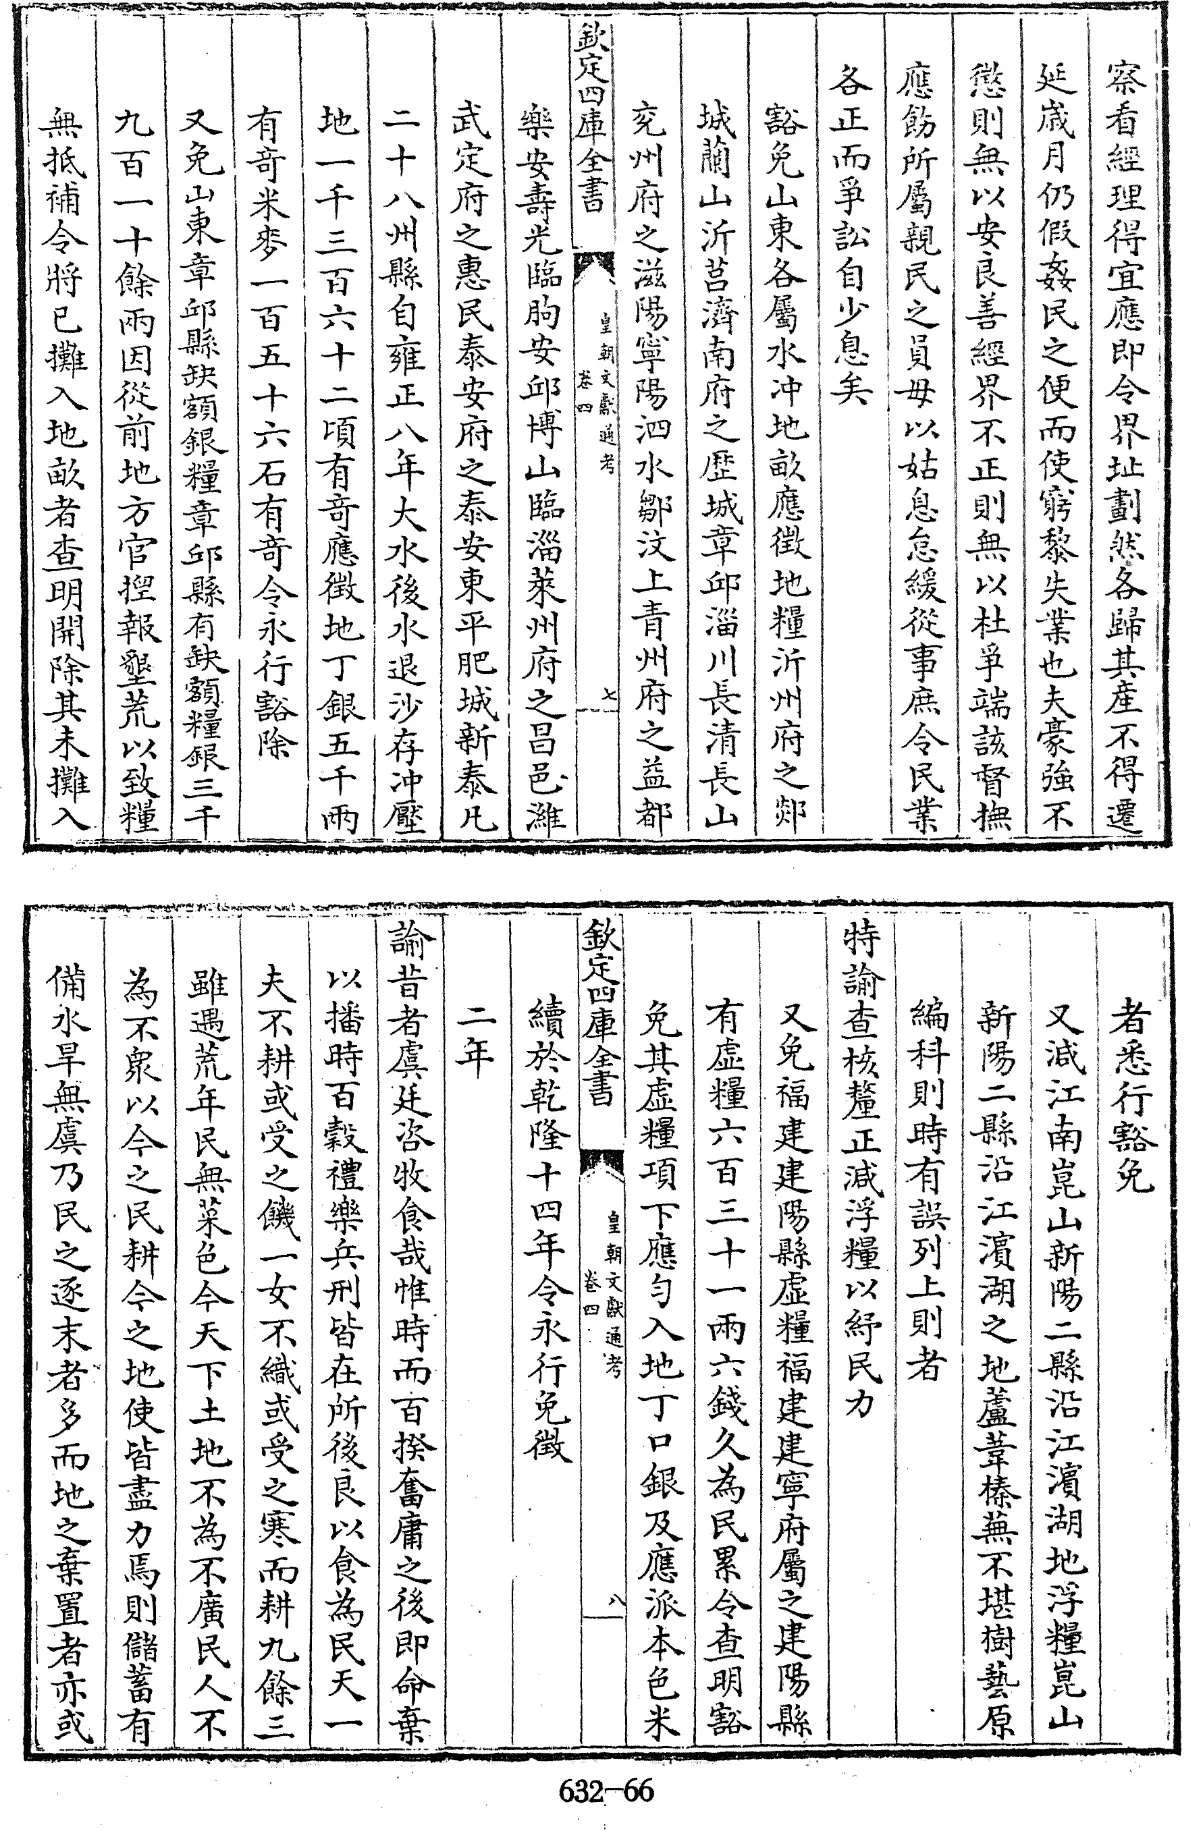 察看經理得宜應即令界址劃然各歸其産不得遷
延歲月仍假姦民之便而使窮黎失業也夫豪強不
懲則無以安良善經界不正則無以杜爭端該督撫
應飭所屬親民之員毋以姑息怠緩從事庶令民業
各正而爭訟自少息矣
豁免山東各屬水冲地畝應徵地糧沂州府之郯
城蘭山沂莒濟南府之歴城章邱淄川長清長山
兖州府之滋陽寧陽泗水鄒汶上青州府之益都
欽定四庫全書
皇朝文獻通考
卷四
七
樂安壽光臨朐安邱博山臨淄萊州府之昌邑濰
武定府之惠民泰安府之泰安東平肥城新泰凡
二十八州縣自雍正八年大水後水退沙存冲壓
地一千三百六十二頃有奇應徵地丁銀五千兩
有奇米麥一百五十六石有奇令永行豁除
又免山東章邱縣缺額銀糧章邱縣有缺額糧銀三千
九百一十餘兩因從前地方官捏報墾荒以致糧
無抵補令將已攤入地畝者查明開除其未攤入
者悉行豁免
又減江南崑山新陽二縣沿江濱湖地浮糧崑山
新陽二縣沿江濱湖之地蘆葦榛蕪不堪樹藝原
編科則時有誤列上則者
特諭查核釐正減浮糧以紓民力
又免福建建陽縣虛糧福建建寧府屬之建陽縣
有虛糧六百三十一兩六錢久為民累令查明豁
免其虛糧項下應勻入地丁口銀及應派本色米
欽定四庫全書
皇朝文獻通考
卷四
八
續於乾隆十四年令永行免徵
二年
諭昔者虞廷咨牧食哉惟時而百揆奮庸之後即命棄
以播時百穀禮樂兵刑皆在所後良以食為民天一
夫不耕或受之饑一女不織或受之寒而耕九餘三
雖遇荒年民無菜色今天下土地不為不廣民人不
為不衆以今之民耕今之地使皆盡力焉則儲蓄有
備水旱無虞乃民之逐末者多而地之棄置者亦或
632-66